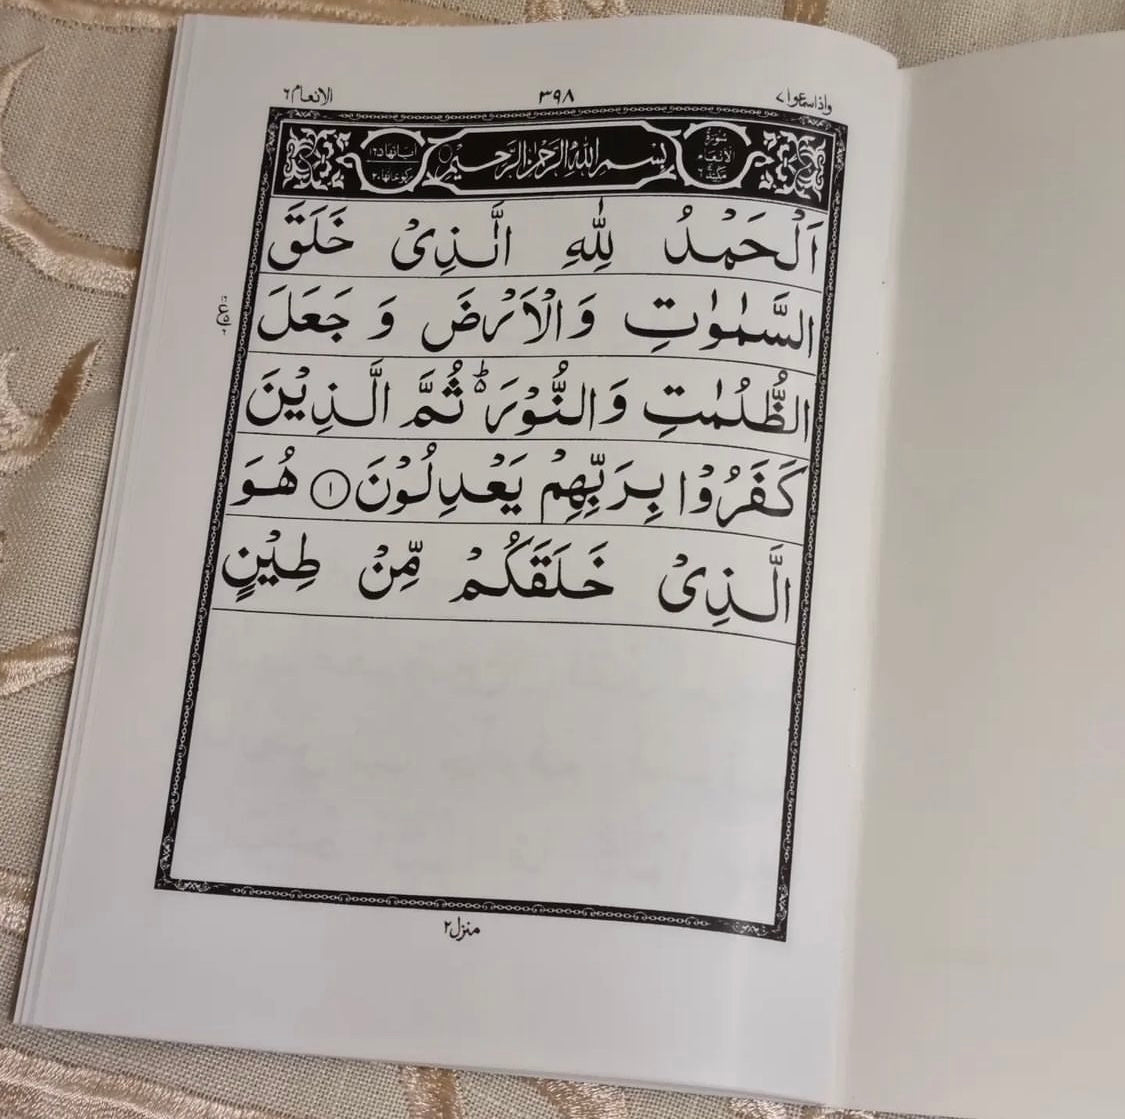 واذاسمعوا٧ ٣٩٨ الانعام٦
سُوْرَةُ الْاَنْعَام مَكِّيَّةٌ ٦ بِسْمِ اللهِ الرَّحْمٰنِ الرَّحِيْمِ
اَلْحَمْدُ لِلّٰهِ الَّذِىْ خَلَقَ
السَّمٰوٰتِ وَالْاَرْضَ وَ جَعَلَ
الظُّلُمٰتِ وَالنُّوْرَ ؕ ثُمَّ الَّذِيْنَ
كَفَرُوْا بِرَبِّهِمْ يَعْدِلُوْنَ ۝١ هُوَ
الَّذِىْ خَلَقَكُمْ مِّنْ طِيْنٍ
منزل٢